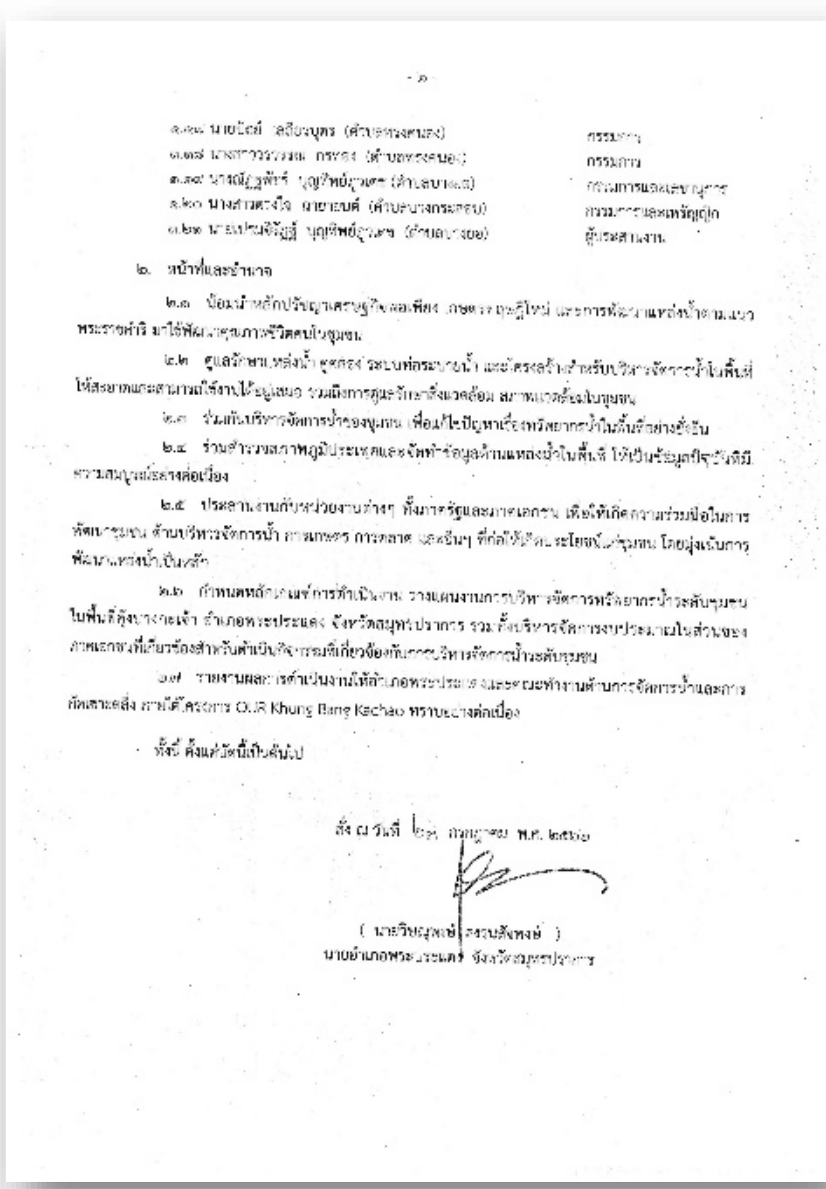 - ๒ -
นายปัถย์ เสถียรบุตร (ตำบลทรงคนอง) กรรมการ
๑.๑๘ นางสาววรวรรณ กรทอง (ตำบลทรงคนอง) กรรมการ
๑.๑๙ นางณัฏฐพัชร์ บุญทิพย์ภูวเดช (ตำบลบางยอ) กรรมการและเลขานุการ
๑.๒๐ นางสาวดวงใจ ฉายายนต์ (ตำบลบางกระสอบ) กรรมการและเหรัญญิก
๑.๒๑ บุญทิพย์ภูวเดช (ตำบลบางยอ) ผู้ประสานงาน
๒. หน้าที่และอำนาจ
๒.๑ น้อมนำหลักปรัชญาเศรษฐกิจพอเพียง เกษตรทฤษฎีใหม่ และการพัฒนาแหล่งน้ำตามแนว
พระราชดำริ มาใช้พัฒนาคุณภาพชีวิตคนในชุมชน
๒.๒ ดูแลรักษาแหล่งน้ำ คูคลอง ระบบท่อระบายน้ำ และโครงสร้างสำหรับบริหารจัดการน้ำในพื้นที่
ให้สะอาดและสามารถใช้งานได้อยู่เสมอ รวมถึงการดูแลรักษาสิ่งแวดล้อม สภาพแวดล้อมในชุมชน
๒.๓ ร่วมกันบริหารจัดการน้ำของชุมชน เพื่อแก้ไขปัญหาเรื่องทรัพยากรน้ำในพื้นที่อย่างยั่งยืน
๒.๔ ร่วมสำรวจสภาพภูมิประเทศและจัดทำข้อมูลด้านแหล่งน้ำในพื้นที่ ให้เป็นข้อมูลปัจจุบันที่มี
ความสมบูรณ์อย่างต่อเนื่อง
๒.๕ ประสานงานกับหน่วยงานต่างๆ ทั้งภาครัฐและภาคเอกชน เพื่อให้เกิดความร่วมมือในการ
พัฒนาชุมชน ด้านบริหารจัดการน้ำ การเกษตร การตลาด และอื่นๆ ที่ก่อให้เกิดประโยชน์แก่ชุมชน โดยมุ่งเน้นการ
พัฒนาแหล่งน้ำเป็นหลัก
๒.๖ กำหนดหลักเกณฑ์การดำเนินงาน วางแผนงานการบริหารจัดการทรัพยากรน้ำระดับชุมชน
ในพื้นที่คุ้งบางกะเจ้า อำเภอพระประแดง จังหวัดสมุทรปราการ รวมทั้งบริหารจัดการงบประมาณในส่วนของ
ภาคเอกชนที่เกี่ยวข้องสำหรับดำเนินกิจกรรมที่เกี่ยวข้องกับการบริหารจัดการน้ำระดับชุมชน
๒.๗ รายงานผลการดำเนินงานให้อำเภอพระประแดงและคณะทำงานด้านการจัดการน้ำและการ
กัดเซาะตลิ่ง ภายใต้โครงการ OUR Khung Bang Kachao ทราบอย่างต่อเนื่อง
ทั้งนี้ ตั้งแต่บัดนี้เป็นต้นไป
สั่ง ณ วันที่ กรกฎาคม พ.ศ. ๒๕๖๒
( นายวิษณุพงษ์ สงวนสัจพงษ์ )
นายอำเภอพระประแดง จังหวัดสมุทรปราการ